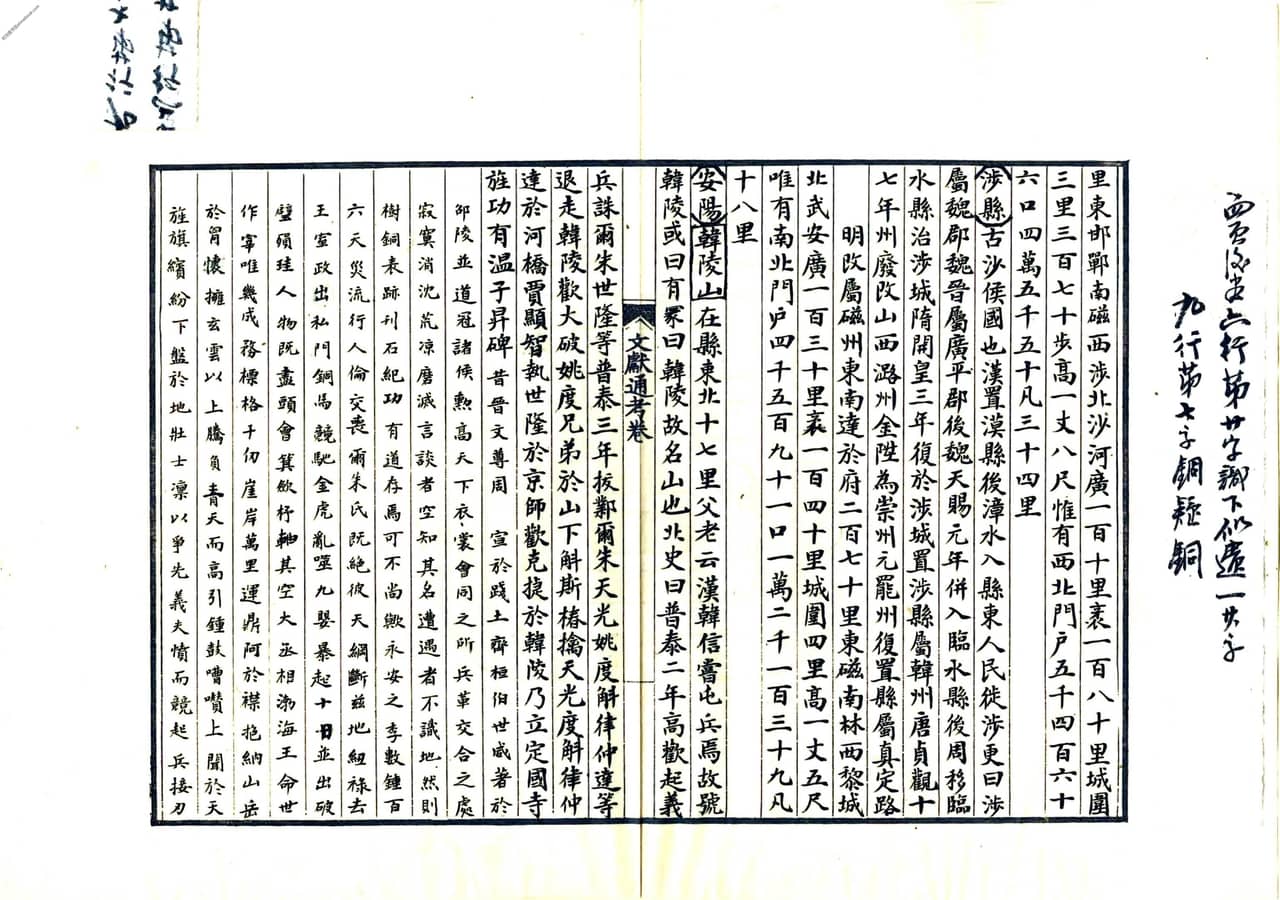 里東邯鄲南磁西涉北沙河廣一百十里袤一百八十里城圍
三里三百七十步高一丈八尺惟有西北門户五千四百六十
六口四萬五千五十凡三十四里
涉縣古沙侯國也漢置漠縣後漳水入縣東人民徙涉更曰涉
屬魏郡魏晉屬廣平郡後魏天賜元年併入臨水縣後周移臨
水縣治涉城隋開皇三年復於涉城置涉縣屬韓州唐貞觀十
七年州廢改山西潞州金陞為崇州元罷州復置縣屬真定路
明改屬磁州東南達於府二百七十里東磁南林西黎城
北武安廣一百三十里袤一百四十里城圍四里高一丈五尺
唯有南北門户四千五百九十一口一萬二千一百三十九凡
十八里
安陽韓陵山在縣東北十七里父老云漢韓信嘗屯兵焉故號
韓陵或曰有冢曰韓陵故名山也北史曰普泰二年高歡起義
文獻通考卷
兵誅爾朱世隆等普泰三年拔鄴爾朱天光姚度斛律仲達等
退走韓陵歡大破姚度兄弟於山下斛斯椿擒天光度斛律仲
達於河橋賈顯智執世隆於京師歡克捷於韓陵乃立定國寺
旌功有温子昇碑昔晉文尊周 宣於踐土齊桓伯世威著於
邵陵並道冠諸侯勲高天下衣裳會同之所兵革交合之處
寂寞消沈荒凉磨滅言談者空知其名遭遇者不識地然則
樹銅表跡刊石紀功有道存焉可不尚歟永安之季數鍾百
六天災流行人倫交喪爾朱氏既絶彼天綱斷兹地紐祿去
王室政出私門銅馬競馳金虎亂噬九嬰暴起十日並出破
璧殞珪人物既盡頭會箕歛杼軸其空大丞相渤海王命世
作宰唯幾成務標格千仞崖岸萬里運鼎阿於襟抱納山岳
於胷懷擁玄雲以上騰負青天而高引鍾鼓嘈囋上聞於天
旌旗繽紛下盤於地壯士凜以爭先義夫憤而競起兵接刃
九行第七字銅疑銅